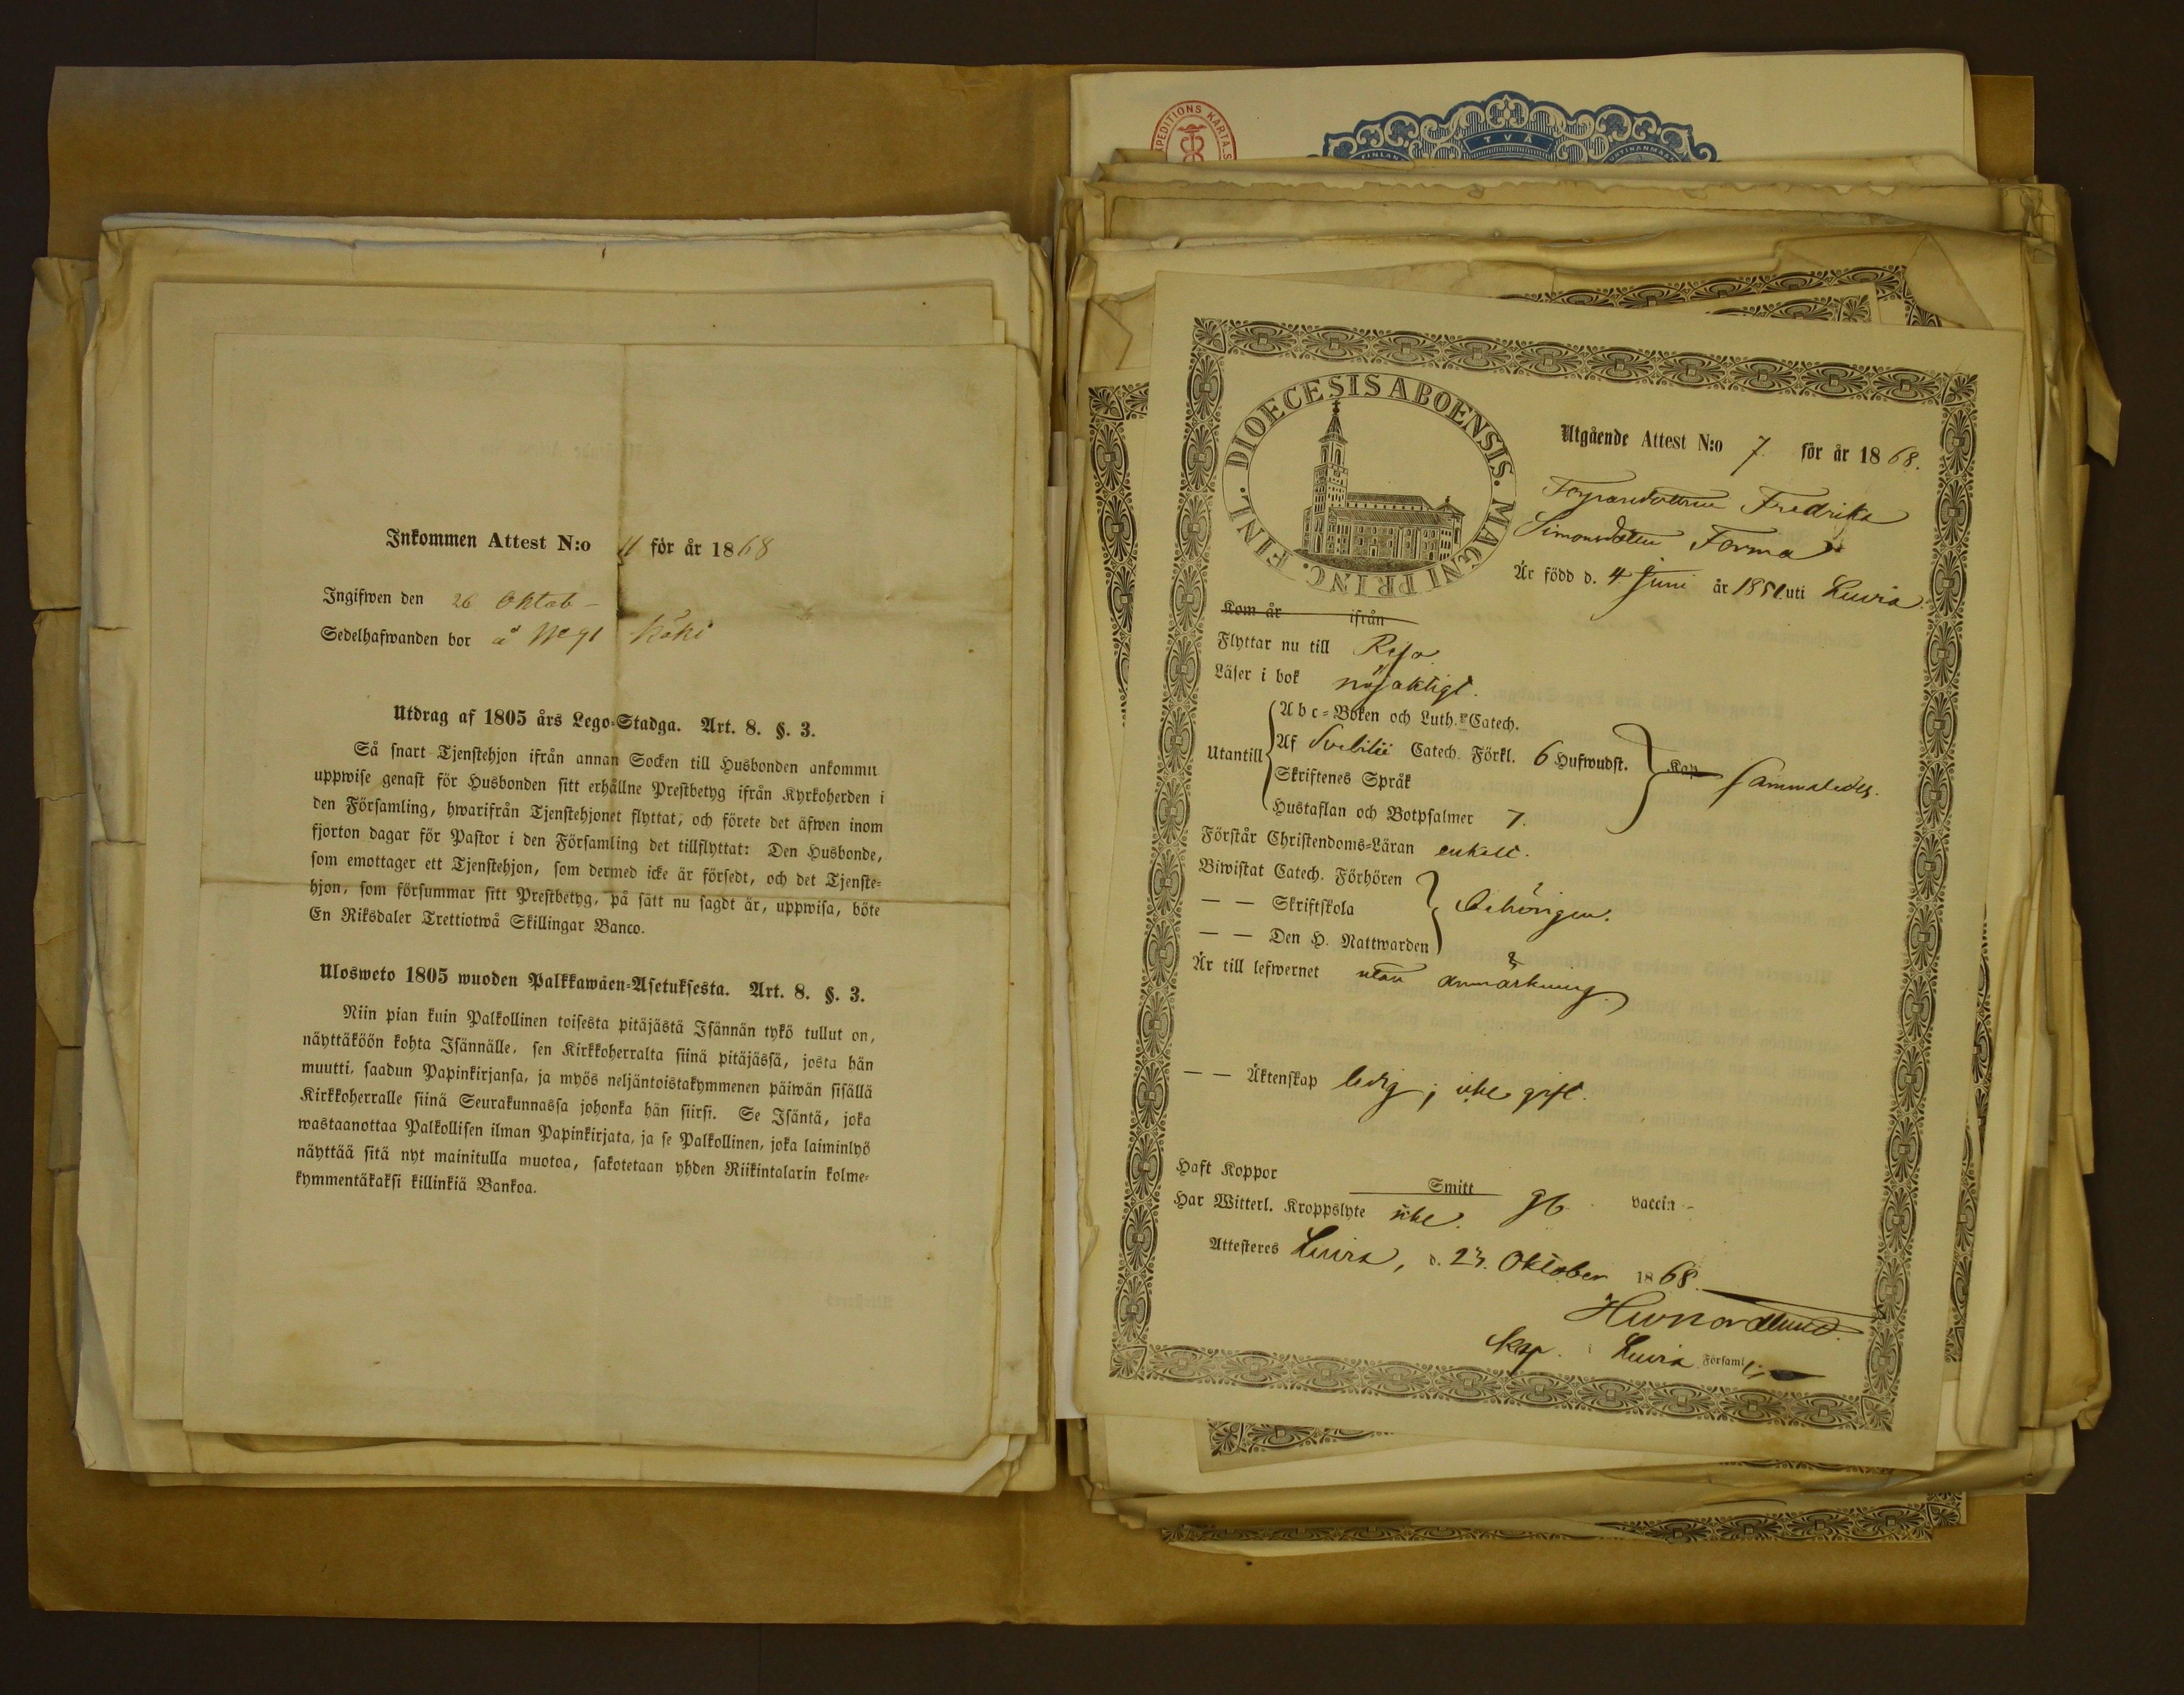 Inkommen Attest N:o 11 för år 1868
Ingifwen den 26 Oktob -
Sedelhafwanden bor å No 91
Utdrag af 1805 års Lego-Stadga. Art. 8. §. 3.
Så snart Tjenstehjon ifrån annan Socken till Husbonden ankommit
uppwise genast för Husbonden sitt erhållne Prestbetyg ifrån Kyrkoherden i
den Församling, hwarifrån Tjenstehjonet flyttat, och förete det äfwen inom
fjorton dagar för Pastor i den Församling det tillflyttat: Den Husbonde,
som emottager ett Tjenstehjon, som dermed icke är försedt, och det Tjenste-
hjon, som försummar sitt Prestbetyg, på sätt nu sagdt är, uppwisa, böte
En Riksdaler Trettiotwå Skillingar Banco.
Ulosweto 1805 wuoden Palkkawäen-Asetuksesta. Art. 8. §. 3.
Niin pian kuin Palkollinen toisesta pitäjästä Isännän tykö tullut on,
näyttäköön kohta Isännälle, sen Kirkkoherralta siinä pitäjässä, josta hän
muutti, saadun Papinkirjansa, ja myös neljäntoistakymmenen päiwän sisällä
Kirkkoherralle siinä Seurakunnassa johonka hän siirsi. Se Isäntä, joka
wastaanottaa Palkollisen ilman Papinkirjata, ja se Palkollinen, joka laiminlyö
näyttää sitä nyt mainitulla muotoa, sakotetaan yhden Riikintalarin kolme-
kymmentäkaksi killinkiä Bankoa.
PEDITIONS KARTA.S
TVÅ
FINLAN
DIOECESIS ABOENSIS. MAGNI PRINC. FINL.
Utgående Attest N:o 7 för år 1868.
Torparedottren Fredrika
Simonsdotter Forma
Är född d. 4 Juni år 1851 uti Luvia
Kom år ifrån
Flyttar nu till
Läser i bok nöjaktigt.
Utantill
Abc-Boken och Luth. Catech.
Af Svebilii Catech. Förkl. 6 Hufwudst.
Skriftenes Språk
Hustaflan och Botpsalmer 7.
Kan sammaledes.
Förstår Christendoms-Läran enkelt.
Biwistat Catech. Förhören
— — Skriftskola
— — Den H. Nattwarden
behörigen.
Är till lefwernet utan anmärkning.
— — Äktenskap ledig; icke gift.
Haft Koppor Smitt vaccin -
Har Witterl. Kroppslyte icke.
Attesteres Luvia, d. 23. Oktober 1868.
Nordlund.
Kap. i Luvia Församl.